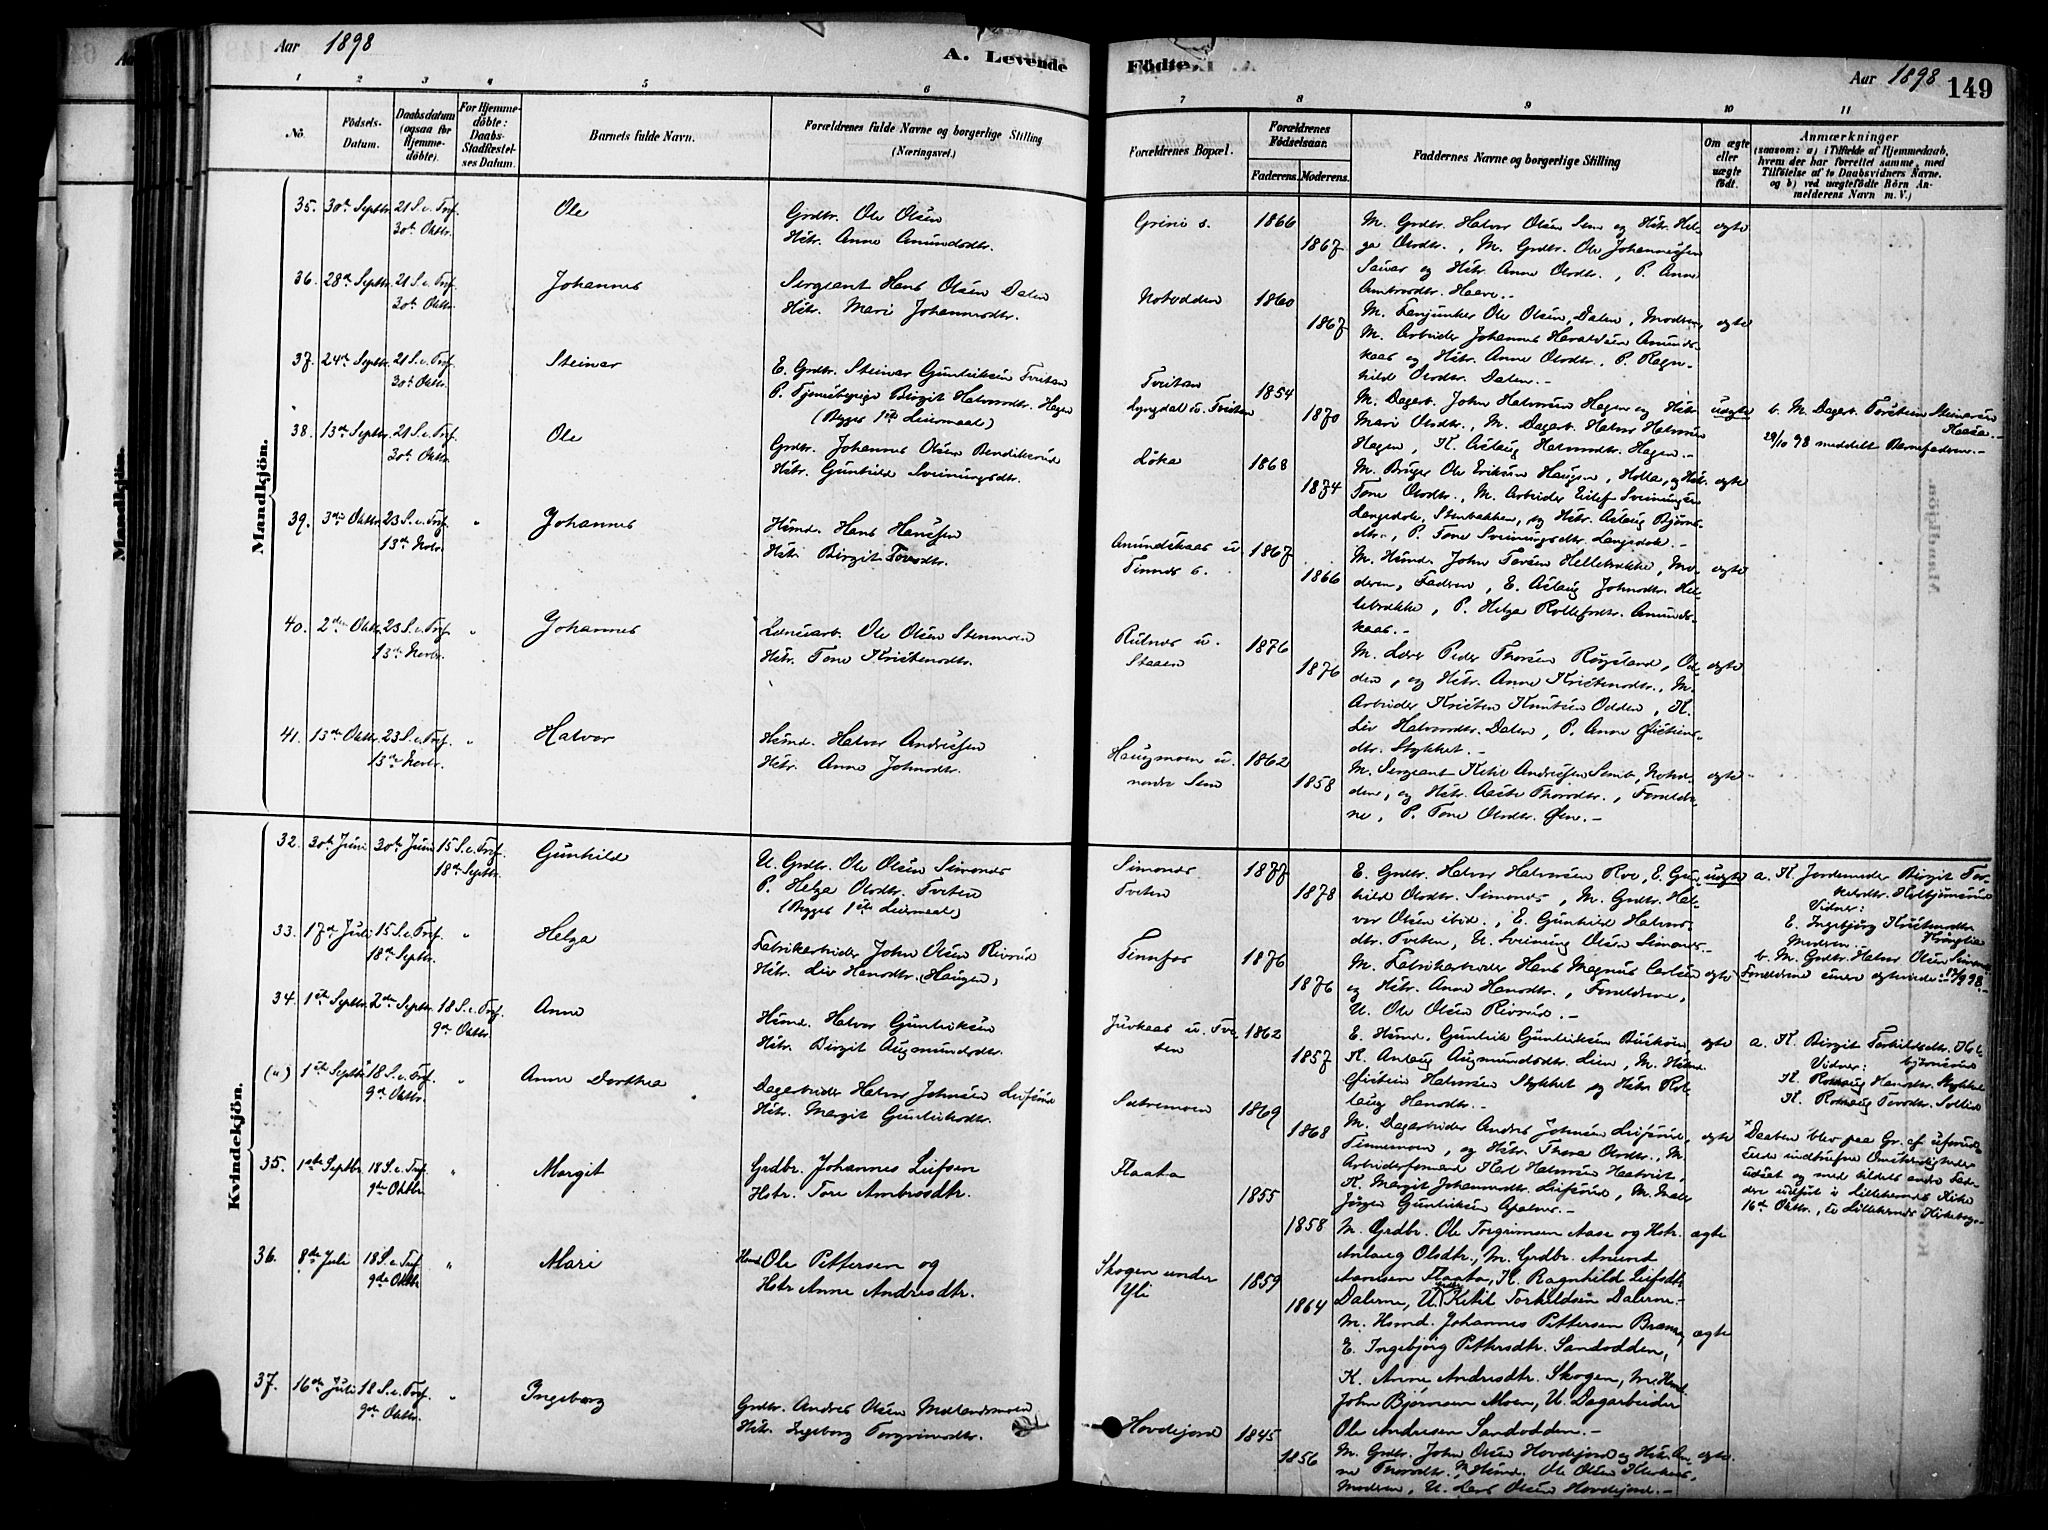 Aar 1898
A. Levende
Födte.
Aar 1898
149
1 2 3 4 5 6 7 8 9 10 11
No.
Födsels-
Datum.
Daabsdatum
(ogsaa for
Hjemme-
döbte).
For Hjemme-
döbte:
Daabs-
Stadfæstel-
ses Datum.
Barnets fulde Navn.
Forældrenes fulde Navne og borgerlige Stilling
(Næringsvei.)
Forældrenes Bopæl.
Forældrenes
Födselsaar.
Faderens. Moderens.
Faddernes Navne og borgerlige Stilling
Om ægte
eller
uægte
födt.
Anmærkninger
(saasom: a) i Tilfælde af Hjemmedaab,
hvem der har forrettet samme, med
Tilföielse af to Daabsvidners Navne.
og b) ved uægtefödte Börn An-
melderens Navn m. V.)
Mandkjön.
35. 30te Septbr. 21 S. e. Tref.
30te Oktbr.
Ole
Grdbr. Ole Olsen
Hstr. Anne Amundsdtr.
Grini s. 1866
1867
M. Grdbr. Halvor Olsen Sem og Hstr. Hel-
ga Olsdtr., M. Grdbr. Ole Johannessen
Sauar og Hstr. Anne Olsdtr., P. Anne
Ambrosdtr. Haave.-
ægte
36. 28de Septbr. 21 S. e. Tref.
30te Oktbr.
Johannes
Sergeant Hans Olsen Dalen
Hstr. Mari Johannesdtr.
Notodden 1860
1867
M. Fanjunker Ole Olsen Dalen, Moderen,
M. Arbeider Johannes Haraldsen Amunds-
kaas og Hstr. Anne Olsdtr., P. Ragn-
hild Olsdtr. Dalen.-
ægte
37. 24de Septbr. 21 S. e. Tref.
30te Oktbr.
Steinar
E. Grdbr. Steinar Gunleiksen Tveitan
P. Tjenestepige Birgit Halvorsdtr. Hagen
(Begges 1ste Leiermaal)
Tveitan
Lyngdal u. Tveiten
1854
1870
M. Dagarb. John Halvorsen Hagen og Hstr.
Mari Olsdtr., M. Dagarb. Halvor Halvorsen
Hagen, K. Aslaug Halvorsdtr. Hagen.-
uægte
b. M. Dagarb. Torstein Steinarsen
Haasa.-
29/10 98 meddelt Barnefaderen.-
38. 13de Septbr. 21 S. e. Tref.
30te Oktbr.
Ole
Grdbr. Johannes Olsen Bendiksrud
Hstr. Gunhild Sveinungsdtr.
Löka 1868
1874
M. Bruger Ole Eriksen Haugen, Holla, og Hstr.
Tone Olsdtr., M. Arbeider Eilef Sveinungsen
Langedole, Stenbakken, og Hstr. Aslaug Bjørns-
dtr., P. Tone Sveinungsdtr. Langedole.-
ægte
39. 3die Oktbr. 23 S. e. Tref.
13de Novbr.
"
Johannes
Husmd. Hans Hansen
Hstr. Birgit Tovsdtr.
Amundskaas u.
Tinnes s.
1867
1866
M. Husmd. John Tovsen Hellebrække, Mo-
deren, Faderen, E. Aslaug Johnsdtr. Hel-
lebrække, P. Helga Rollefsdtr. Amunds-
kaas.-
ægte
40. 2den Oktbr. 23 S. e. Tref.
13de Novbr.
"
Johannes
Ole Olsen Stenmoen
Hstr. Tone Kristensdtr.
Rudnes u.
Staaen
1876
1876
M. Lærer Peder Thorsen Røysland, Od-
den, og Hstr. Anne Kristensdtr., M.
Arbeider Kristen Knutsen Odden, K.
Liv Halvorsdtr. Dalen, P. Anne Øisteins-
dtr. Stykket.-
ægte
41. 13de Oktbr. 23 S. e. Tref.
13de Novbr.
"
Halvor
Husmd. Halvor Andresen
Hstr. Anne Johnsdtr.
Haugmoen u.
nordre Sem
1862
1858
M. Sergeant Ketil Andresen Semb, Notod-
den, og Hstr. Aaste Thorsdtr., Forældre-
ne, P. Tone Olsdtr. Øine.-
ægte
Kvindekjön.
32. 30te Juni 30te Juni 15 S. e. Tref.
18de Septbr.
Gunhild
U. Grdbr. Ole Olsen Simones
P. Helga Olsdtr. Tveten
(Begges 1ste Leiermaal)
Simones
Tveten
1877
1878
E. Grdbr. Halvor Halvorsen Roe, E. Gun-
hild Olsdtr. Simones, M. Grdbr. Hal-
vor Olsen ibid., E. Gunhild Halvors-
dtr. Tveten, U. Sveinung Olsen Simones.-
uægte
a. K. Jordemoder Birgit Tor-
kelsdtr. Helbjønsrud
Vidner:
E. Ingebjørg Kristensdtr.
Moderen.
b. M. Grdbr. Halvor Olsen Simones
17/9 98.-
33. 17de Juli 15 S. e. Tref.
18de Septbr.
"
Helga
Fabrikarbeider John Olsen Rivrud
Hstr. Liv Hansdtr. (Haugen)
Tinnfos 1876
1876
M. Fabrikarbeider Hans Magnus Carlsen
og Hstr. Anne Hansdtr., Forældrene,
U. Ole Olsen Rivrud.-
ægte
Forældrene ere ægteviede
34. 1ste Septbr. 2den Septbr. 18 S. e. Tref.
9de Oktbr.
Anne
Husmd. Halvor Gunleiksen
Hstr. Birgit Augmundsdtr.
Juvkaas u. Tve-
ten
1862
1857
E. Husmd. Gunleik Gunleiksen Buskoin,
K. Anlaug Augmundsdtr. Lien, M. Husmd.
Øistein Halvorsen Stykket og Hstr. Ros-
laug Hansdtr.-
ægte
a. K. Birgit Torkildsdtr. Hel-
bjønsrud
Vidner:
K. Roslaug Hansdtr. Stykket
K. Roslaug Tovsdtr. Sollid
(u) 1ste Septbr. 18 S. e. Tref.
9de Oktbr.
"
Anne Dorthea
Dagarbeider Halvor Johnsen Leifsrud
Hstr. Margit Gunleiksdtr.
Sætremoen 1869
1868
M. Dagarbeider Andres Johnsen Leifsrud,
Tinnemoen, og Hstr. Thora Olsdtr., M.
Arbeidsformand Karl Halvorsen Haatveit,
K. Margit Johannesdtr. Leifsrud, M. Maler
Jørgen Gunleiksen Apalnes.-
ægte
Daaben blev paa Gr. af uforud-
seede indtrufne Omstændigheder
udsat og med tildels andre Fad-
dre udført i Lilleherreds Kirke
16de Oktbr., se Lilleherreds Kirkebog.-
35. 1ste Septbr. 18 S. e. Tref.
9de Oktbr.
"
Margit
Grdbr. Johannes Leifsen
Hstr. Tore Ambrosdtr.
Flaata
1855
1858
M. Grdbr. Ole Torgrimsen Aase og Hstr.
Anlaug Olsdtr., M. Grdbr. Amund
Aamsen Flaata, K. Ragnhild Leifsdtr.
Dalerne, U. Ketil Torkildsen Dalerne.-
ægte
36. 8de Juli 18 S. e. Tref.
9de Oktbr.
"
Mari
Hmd Ole Pettersen og
Hstr Anne Andresdtr.
Skogen under
Yli
1859
1864
M. Husmd. Johannes Pettersen Bræne,
E. Ingebjörg Pettersdtr. Sandodden,
K. Anne Andresdtr. Skogen, M. Husmd.
John Bjørnsen Moen, U. Dagarbeider
Ole Andresen Sandodden.-
ægte
37. 16de Juli 18 S. e. Tref.
9de Oktbr.
"
Ingeborg
Grdbr. Andres Olsen Melandsmoen
Hstr. Ingeborg Torgrimsdtr.
Hovdejord 1845
1856
M. Grdbr. John Olsen Hovdejord og Hstr. An-
ne Thorsdtr., M. Husmd. Ole Olsen
Moderen, U. Lars Olsen Hovdejord.-
ægte.